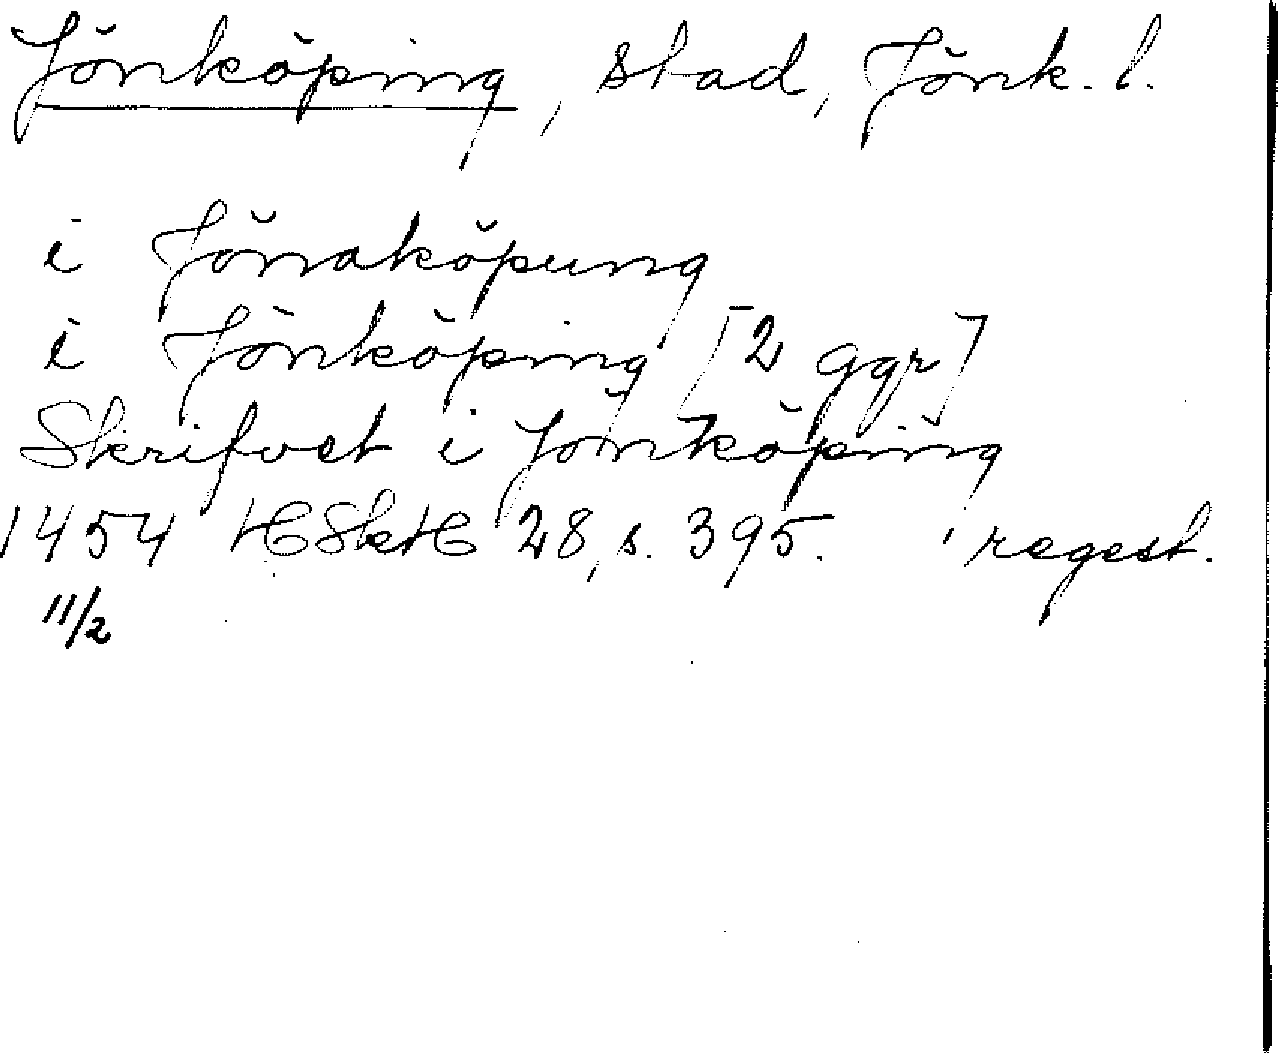 Jönköping, stad, Jönk. l.
i Jönaköpung
i Jönköping [2 ggr]
Skrifvet i Jönköping
1454 HSkH 28, s. 395. regest.
11/2